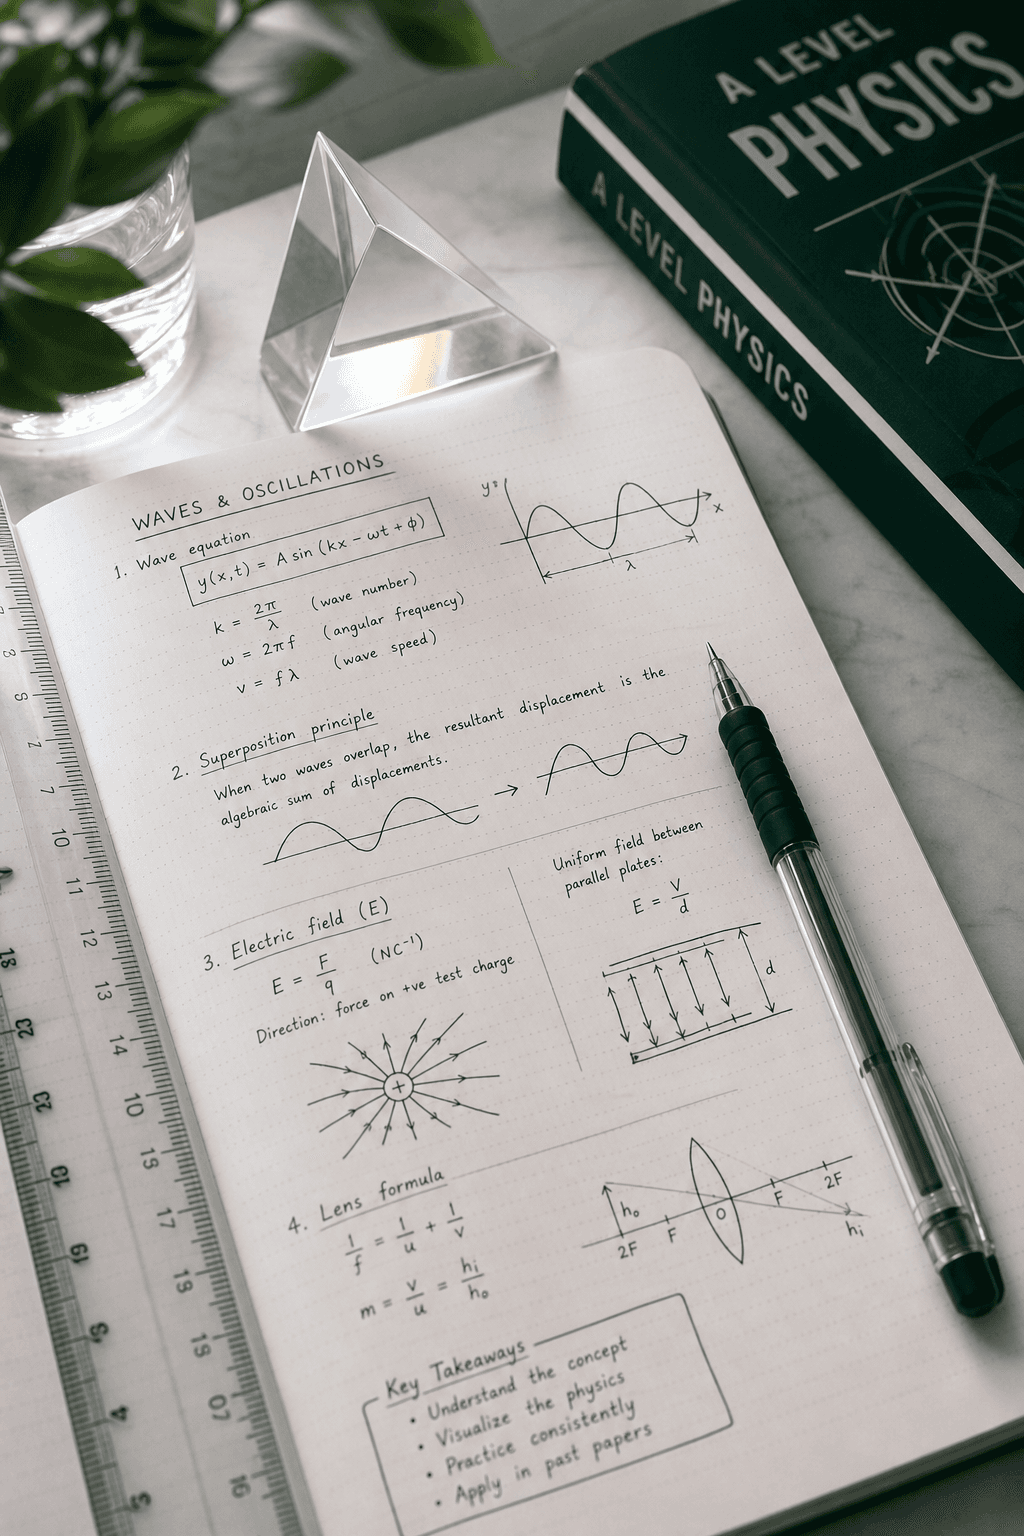 A LEVEL
PHYSICS
A LEVEL PHYSICS
WAVES & OSCILLATIONS
1. Wave equation
y(x,t) = A sin (kx − ωt + ϕ)
k = 2π/λ (wave number)
ω = 2πf (angular frequency)
v = fλ (wave speed)
y↑
x
λ
2. Superposition principle
When two waves overlap, the resultant displacement is the
algebraic sum of displacements.
→
3. Electric field (E)
E = F/q (NC⁻¹)
Direction: force on +ve test charge
+
Uniform field between
parallel plates:
E = V/d
d
4. Lens formula
1/f = 1/u + 1/v
m = v/u = hi/ho
ho
2F
F
O
F
2F
hi
Key Takeaways
• Understand the concept
• Visualize the physics
• Practice consistently
• Apply in past papers
7
10
11
12
13
14
10
17